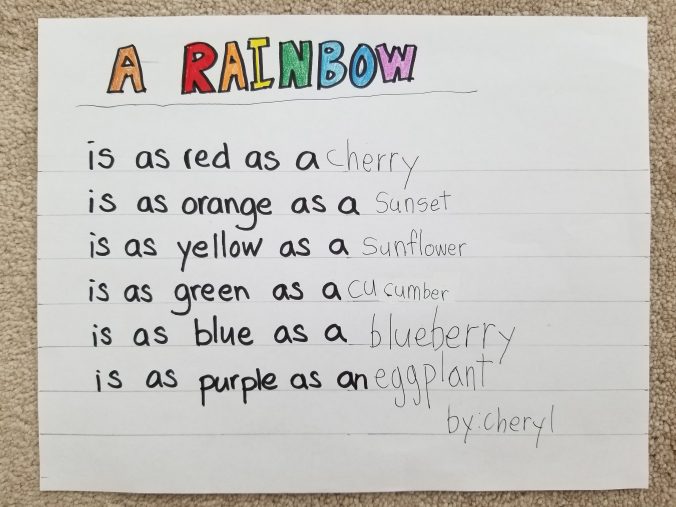 A RAINBOW
is as red as a cherry
is as orange as a Sunset
is as yellow as a Sunflower
is as green as a cucumber
is as blue as a blueberry
is as purple as an eggplant
by:cheryl